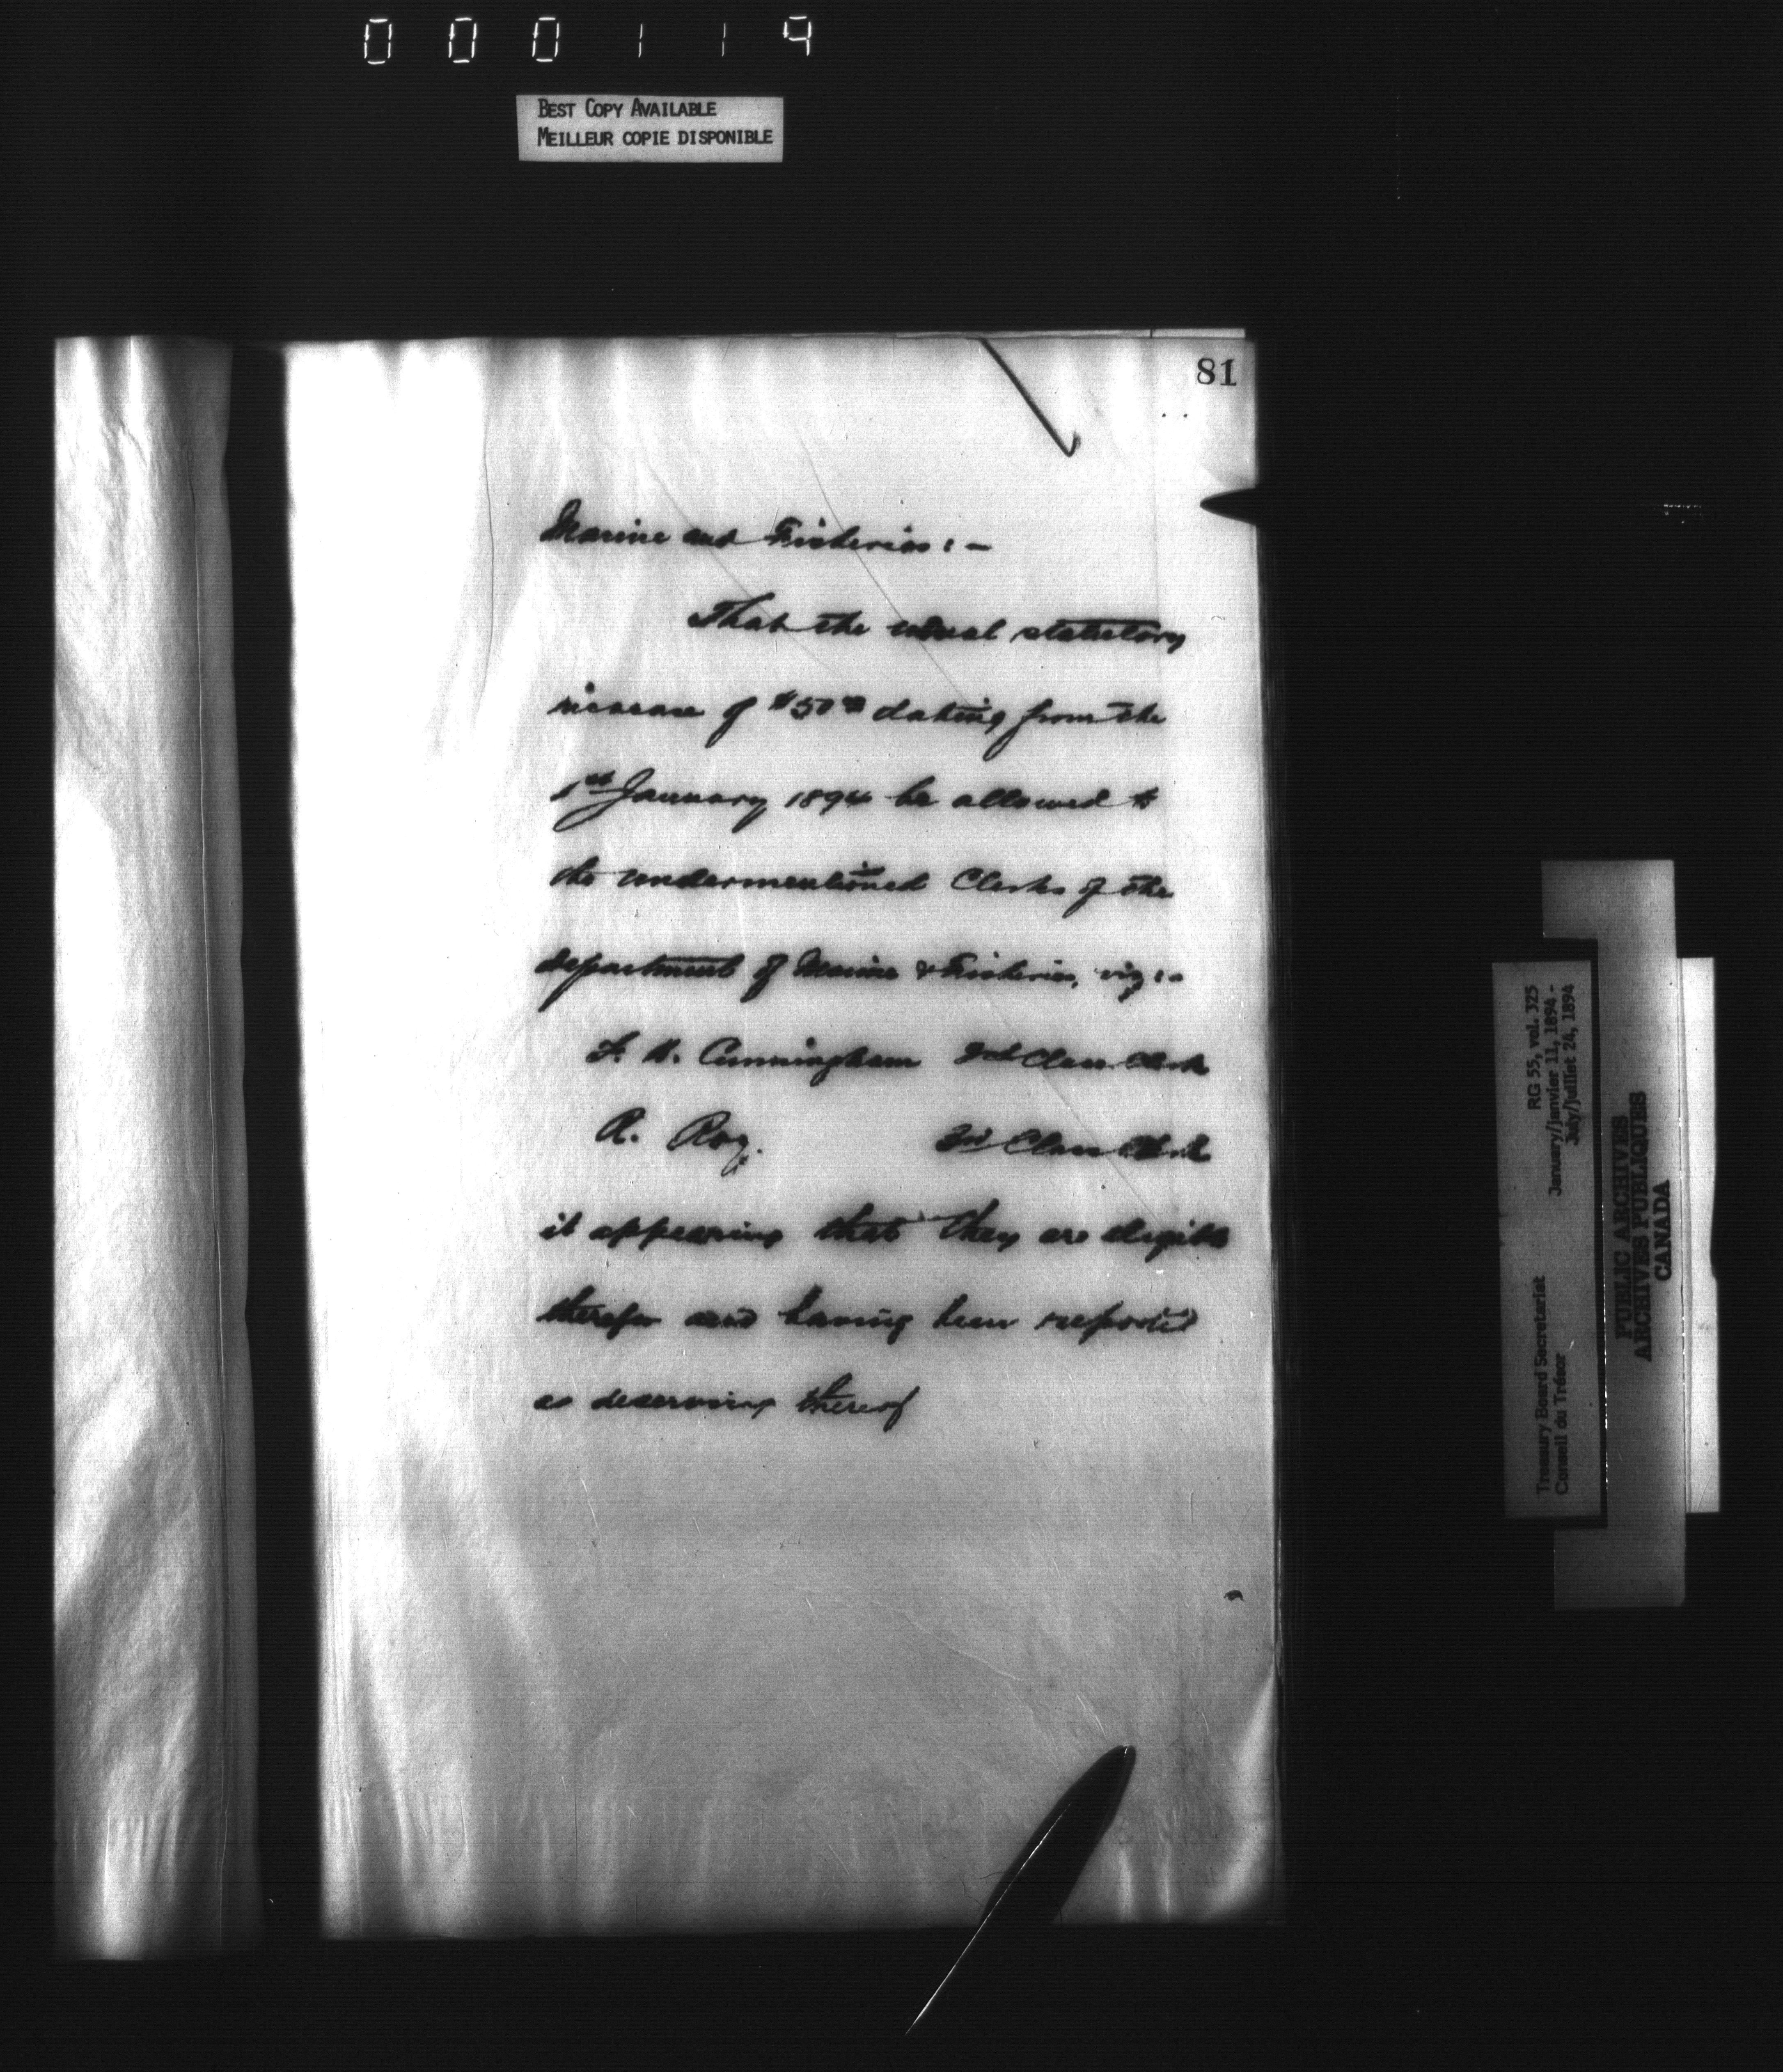 000119
BEST COPY AVAILABLE
MEILLEUR COPIE DISPONIBLE
81
Marine and Fisheries :-
That the usual statutory
increase of $50.00 dating from the
1st January 1894 be allowed to
the undermentioned Clerks of the
department of Marine & Fisheries, viz :-
F. H. Cunningham 2nd Class Clerk
A. Roy. 3rd Class Clerk
it appearing that they are eligible
therefor and having been reported
as deserving thereof
RG 55, vol. 325
January/janvier 11, 1894 -
July/juillet 24, 1894
Treasury Board Secretariat
Conseil du Trésor
PUBLIC ARCHIVES
ARCHIVES PUBLIQUES
CANADA